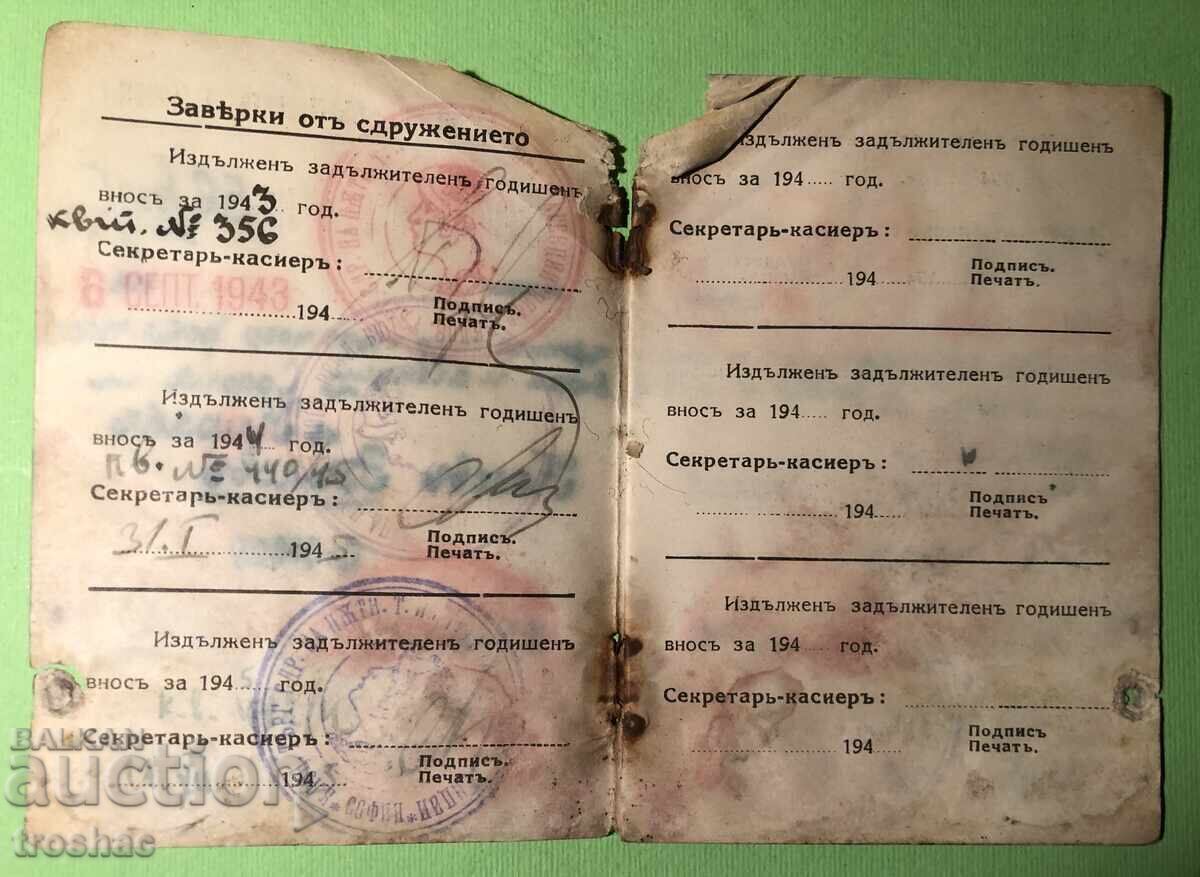 Завѣрки отъ сдружението
Издълженъ задължителенъ годишенъ
вносъ за 1943 год.
квит. № 356
Секретарь-касиеръ:
6 СЕПТ. 1943
194 Подпись.
Печатъ.
Издълженъ задължителенъ годишенъ
вносъ за 1944 год.
кв. № 440/45
Секретарь-касиеръ:
31.I 1945 Подпись.
Печатъ.
Издълженъ задължителенъ годишенъ
вносъ за 194 год.
Секретарь-касиеръ:
194 Подпись.
Печатъ.
СОФИЯ
Издълженъ задължителенъ годишенъ
вносъ за 194 год.
Секретарь-касиеръ:
194 Подпись.
Печатъ.
Издълженъ задължителенъ годишенъ
вносъ за 194 год.
Секретарь-касиеръ:
194 Подпись
Печатъ.
Издълженъ задължителенъ годишенъ
вносъ за 194 год.
Секретарь-касиеръ:
194 Подпись
Печатъ.
БАЛКАН
auction
troshac